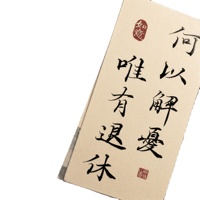 何以解憂
唯有退休